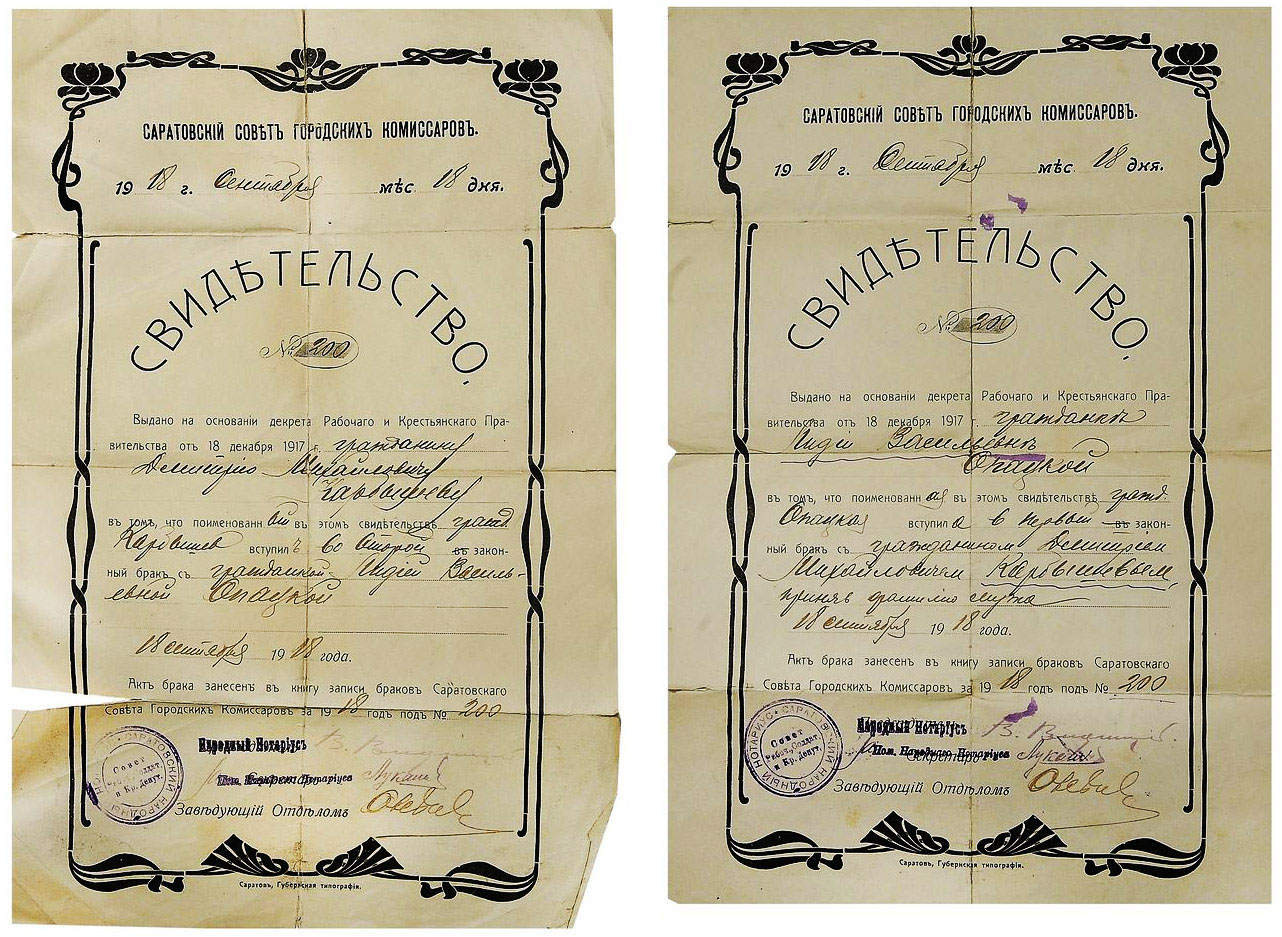 САРАТОВСКІЙ СОВѢТЪ ГОРОДСКИХЪ КОМИССАРОВЪ.
19 18 г. Сентября мѣс 18 дня.
СВИДѢТЕЛЬСТВО.
№ 200
Выдано на основаніи декрета Рабочаго и Крестьянскаго Пра-
вительства отъ 18 декабря 1917 г. гражданину
Димитрію Михайловичу
Карбышеву
въ томъ, что поименованн ый въ этомъ свидѣтельствѣ гражд.
Карбышев вступил ъ во второй въ закон-
ный бракъ съ гражданкой Лидіей Василь-
евной Опацкой
18 сентября 19 18 года.
Актъ брака занесенъ въ книгу записи браковъ Саратовскаго
Совѣта Городскихъ Комиссаровъ за 19 18 годъ подъ № 200
Народный Нотаріусъ
Пом. Нотаріуса
Завѣдующій Отдѣломъ
САРАТОВСКІЙ НАРОДНЫ
Совѣт
Рабоч., Солдат.
и Кр. Депут.
Саратовъ, Губернская типографія.
САРАТОВСКІЙ СОВѢТЪ ГОРОДСКИХЪ КОМИССАРОВЪ.
19 18 г. Сентября мѣс 18 дня.
СВИДѢТЕЛЬСТВО.
№ 200
Выдано на основаніи декрета Рабочаго и Крестьянскаго Пра-
вительства отъ 18 декабря 1917 г. гражданкѣ
Лидіи Васильевнѣ
Опацкой
въ томъ, что поименованн ая въ этомъ свидѣтельствѣ гражд.
Опацкая вступил а в первый въ закон-
ный бракъ съ гражданином Димитріем
Михайловичем Карбышевым,
принявъ фамилію мужа
18 сентября 19 18 года.
Актъ брака занесенъ въ книгу записи браковъ Саратовскаго
Совѣта Городскихъ Комиссаровъ за 19 18 годъ подъ № 200
Народный Нотаріусъ
Пом. Народнаго Нотаріуса
Секретарь
Завѣдующій Отдѣломъ
САРАТОВСКІЙ НАРОДНЫЙ НОТАРІУС
Совѣт
Рабоч., Солдат.
и Кр. Депут.
Саратовъ, Губернская типографія.